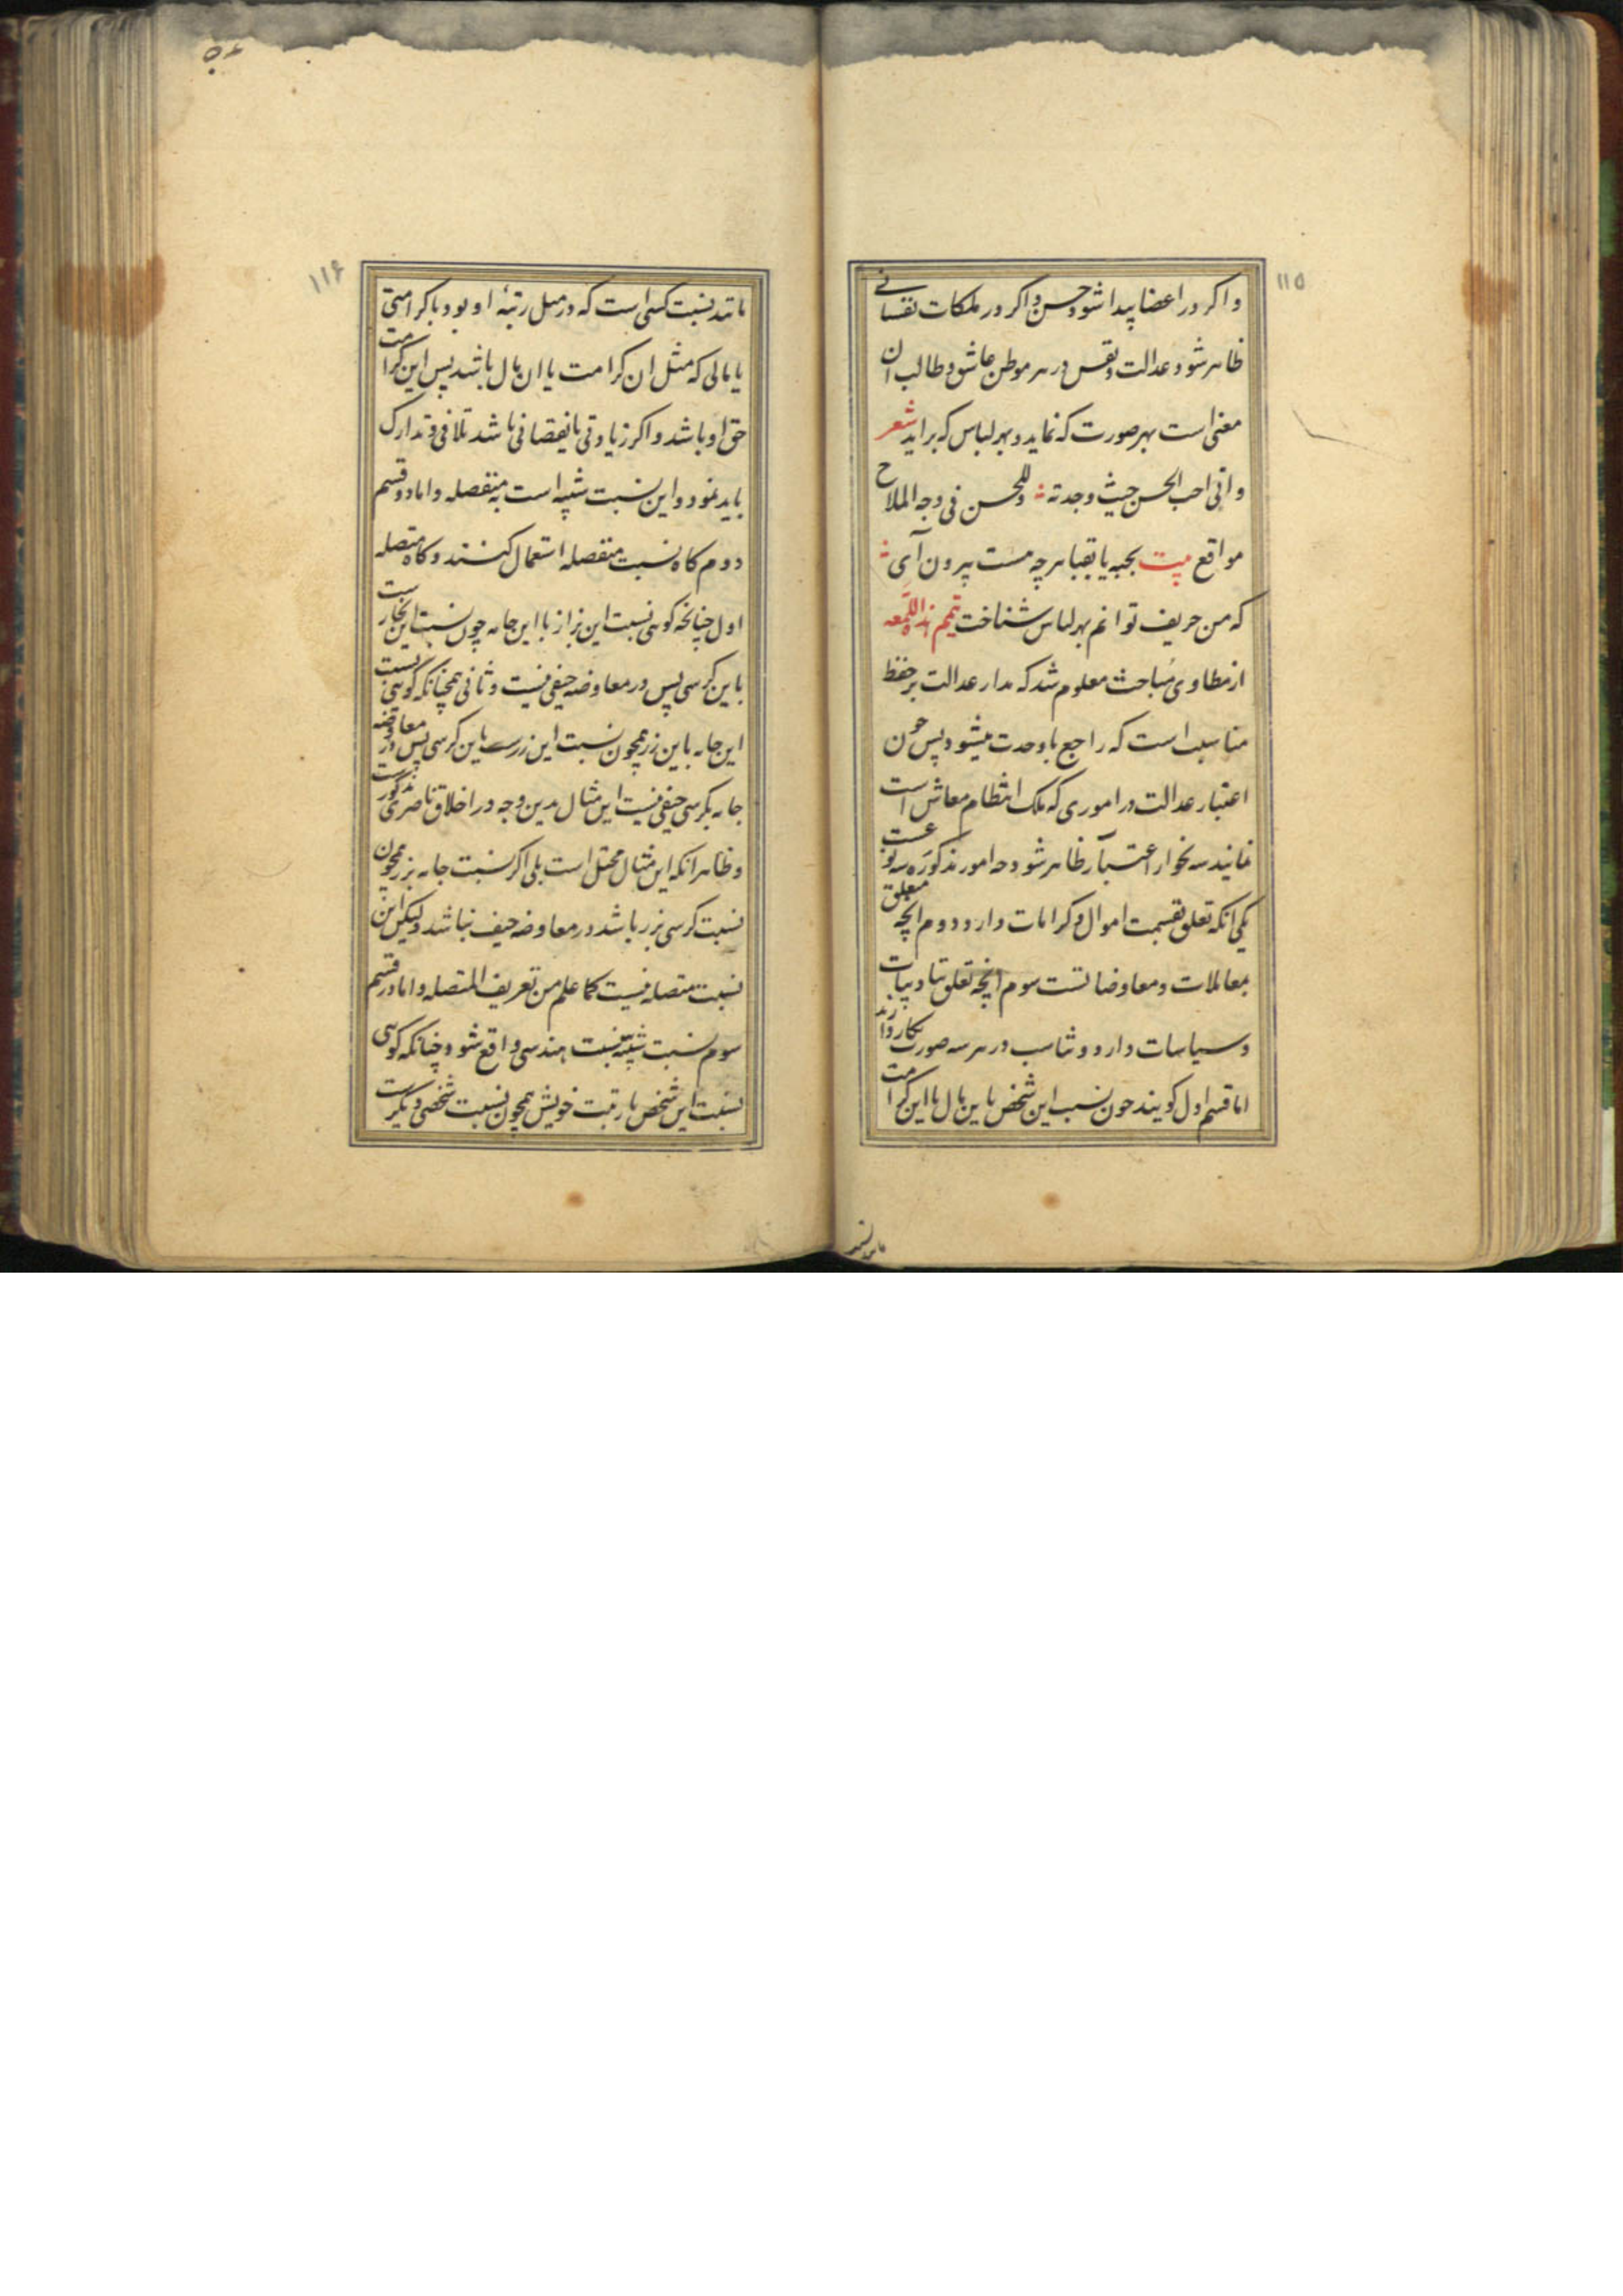 ۱۱۵
و اکر در اعضا پیدا شود حسن و اکر در ملکات نفسانی
ظاهر شود عدالت و نفس در هر موطن عاشق و طالب ان
معنی است بهر صورت که نماید و بهر لباس که براید شعر
و انی احب الحسن حیث وجدته و للحسن فی وجه الملاح
مواقع بیت بجبه یا بقبا هرچه هست بیرون آی
که من حریف توانم بهر لباس شناخت تتمیم هذه اللمعه
از مطاوی مباحث معلوم شد که مدار عدالت بر حفظ
مناسبت است که راجع با وحدت میشود پس چون
اعتبار عدالت در اموری که ملاک انتظام معاش است
نمایند سه نحو از اعتبار ظاهر شود چه امور مذکوره سه نوعست
یکی انکه تعلق بقسمت اموال و کرامات دارد دوم انچه متعلق
بمعاملات و معاوضاتست سوم انچه تعلق بتادیبات
و سیاسات دارد و تناسب در هر سه صورت بکار دارند
اما قسم اول کویند چون نسبت این شخص باین مال یا این کرامت
مانند نسبت
۱۱۶
مانند نسبت کسی است که در مثل رتبهٔ او بود با کرامتی
یا مالی که مثل ان کرامت یا ان مال باشد پس این کرامت
حق او باشد و اکر زیادتی یا نقصانی باشد تلافی و تدارک
باید نمود و این نسبت شبیه است به منفصله و اما در قسم
دوم کاه نسبت منفصله استعمال کنند و کاه متصله
اول چنانچه کوئی نسبت این بزاز با این جامه چون نسبت این نجارست
باین کرسی پس در معاوضه حیفی نیست و ثانی همچنانکه کوئی نسبت
این جامه باین زر همچون نسبت این زرست باین کرسی پس در معاوضه
جامه بکرسی حیفی نیست این مثال بدین وجه در اخلاق ناصری مذکورست
و ظاهر انکه این مثال مختل است بلی اکر نسبت جامه بزر همچون
نسبت کرسی بزر باشد در معاوضه حیف نباشد ولیکن این
نسبت متصله نیست کما علم من تعریف المتصله و اما در قسم
سوم نسبت شبیه بنسبت هندسی واقع شود چنانکه کوئی
نسبت این شخص با رتبت خویش همچون نسبت شخصی دیکرست